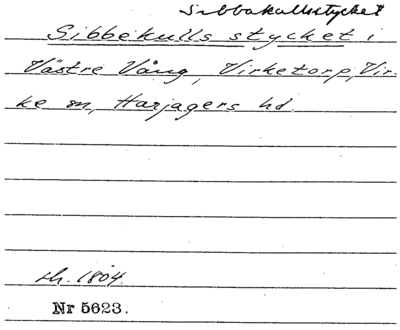 Sibbakullsstycket
Sibbekulls stycket i
Västre Vång, Virketorp, Vir-
ke sn, Harjagers hd.
sh. 1804.
Nr 5623.